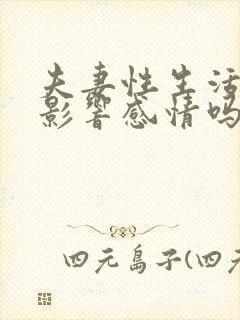 夫妻性生活
影響感情吗
四元島子(四元